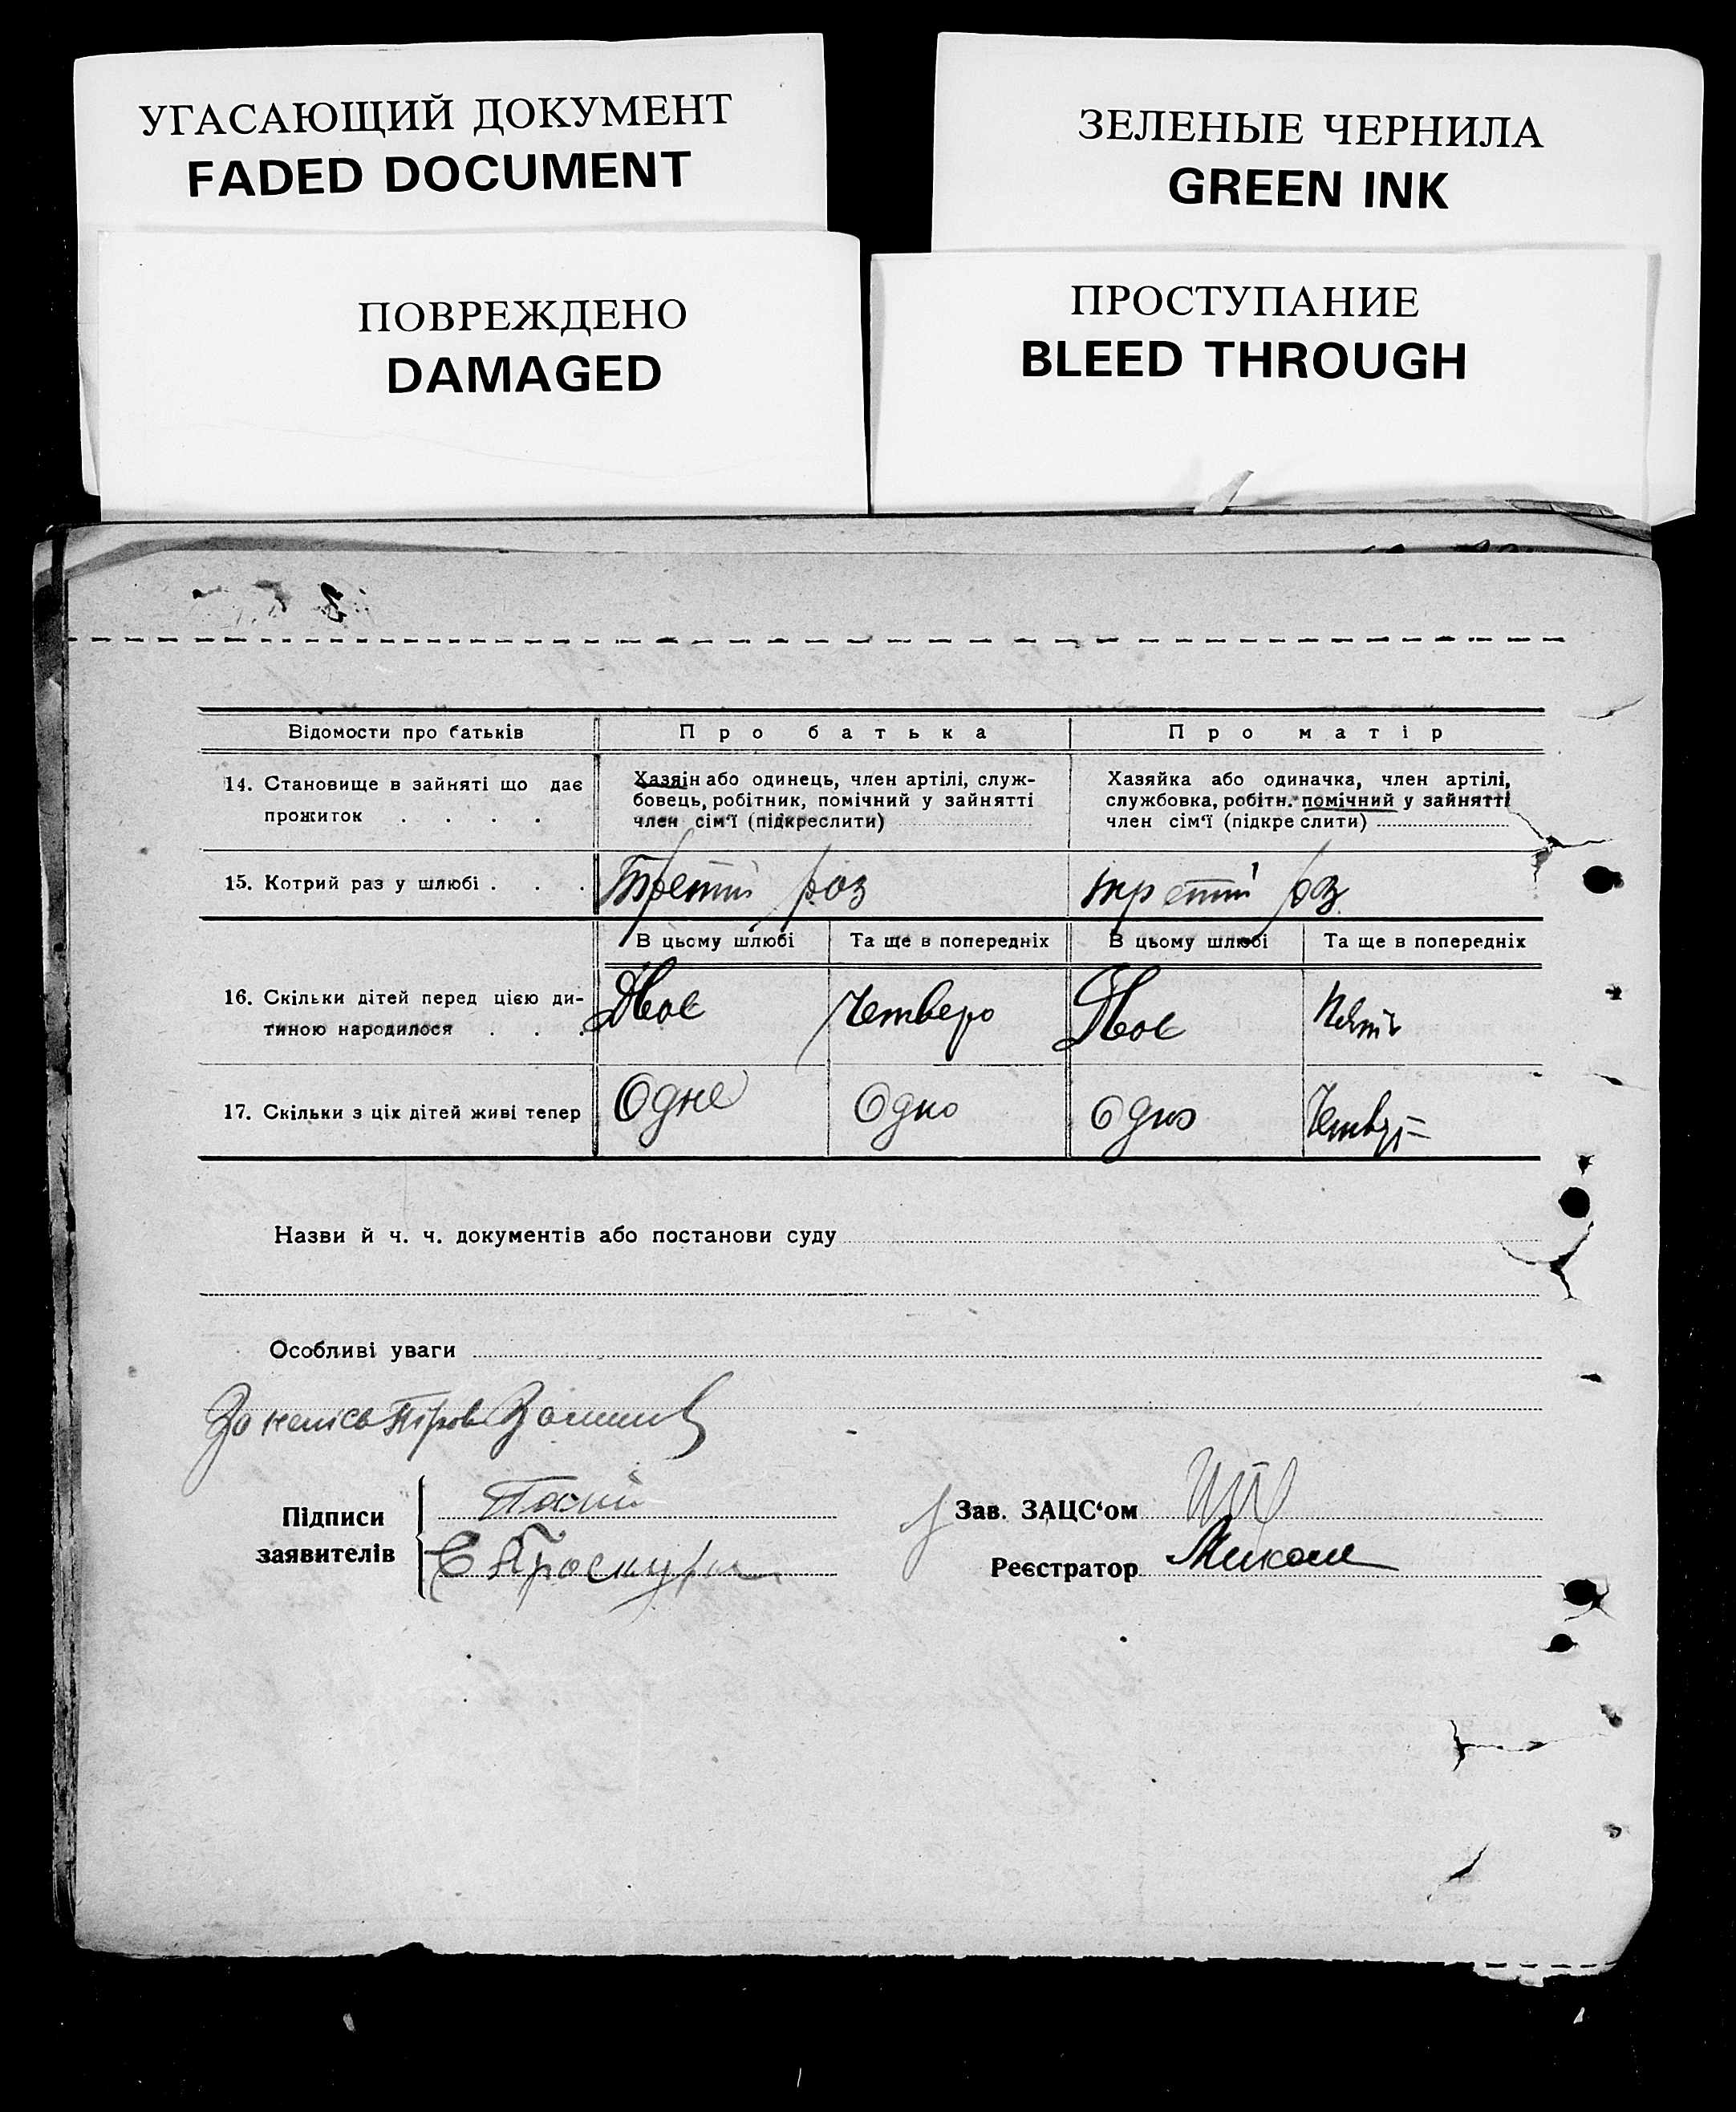 УГАСАЮЩИЙ ДОКУМЕНТ
FADED DOCUMENT
ЗЕЛЕНЫЕ ЧЕРНИЛА
GREEN INK
ПОВРЕЖДЕНО
DAMAGED
ПРОСТУПАНИЕ
BLEED THROUGH
Відомости про батьків
Про батька
Про матір
14. Становище в зайняті що дає
прожиток . . . .
Хазяїн або одинець, член артілі, служ-
бовець, робітник, помічний у зайнятті
член сім'ї (підкреслити)
Хазяйка або одиначка, член артілі,
службовка, робітн. помічний у зайнятті
член сім'ї (підкреслити)
15. Котрий раз у шлюбі . . .
Третій раз
третій раз
В цьому шлюбі
Та ще в попередніх
В цьому шлюбі
Та ще в попередніх
16. Скільки дітей перед цією ди-
тиною народилося . . .
Двоє
Четверо
Двоє
17. Скільки з ціх дітей живі тепер
Одне
Одно
одно
Назви й ч. ч. документів або постанови суду
Особливі уваги
Підписи
заявителів
Є Проскура
Зав. ЗАЦС'ом
Реєстратор